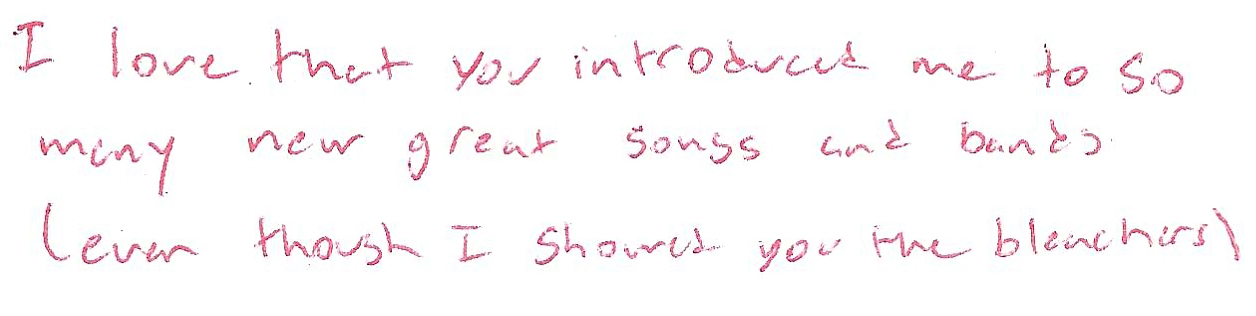 I love that you introduced me to so
many new great songs and bands.
(even though I showed you the bleachers)